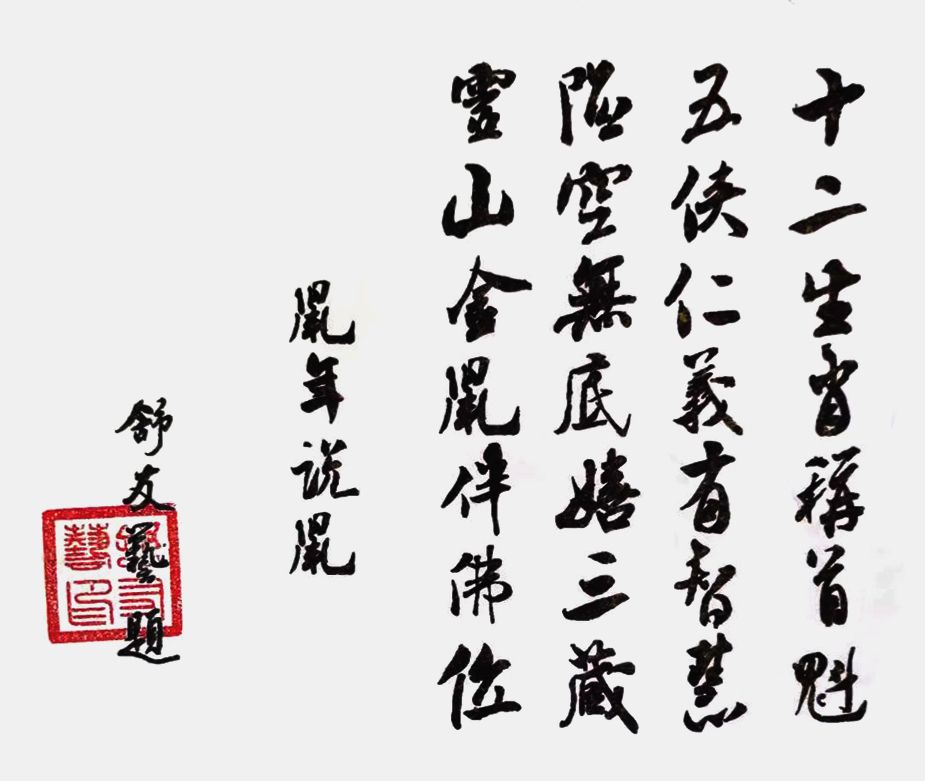 十二生肖稱首魁
五俠仁義有智慧
陷空無底嬉三藏
靈山金鼠伴佛位
鼠年说鼠
舒友藝題
舒友藝印